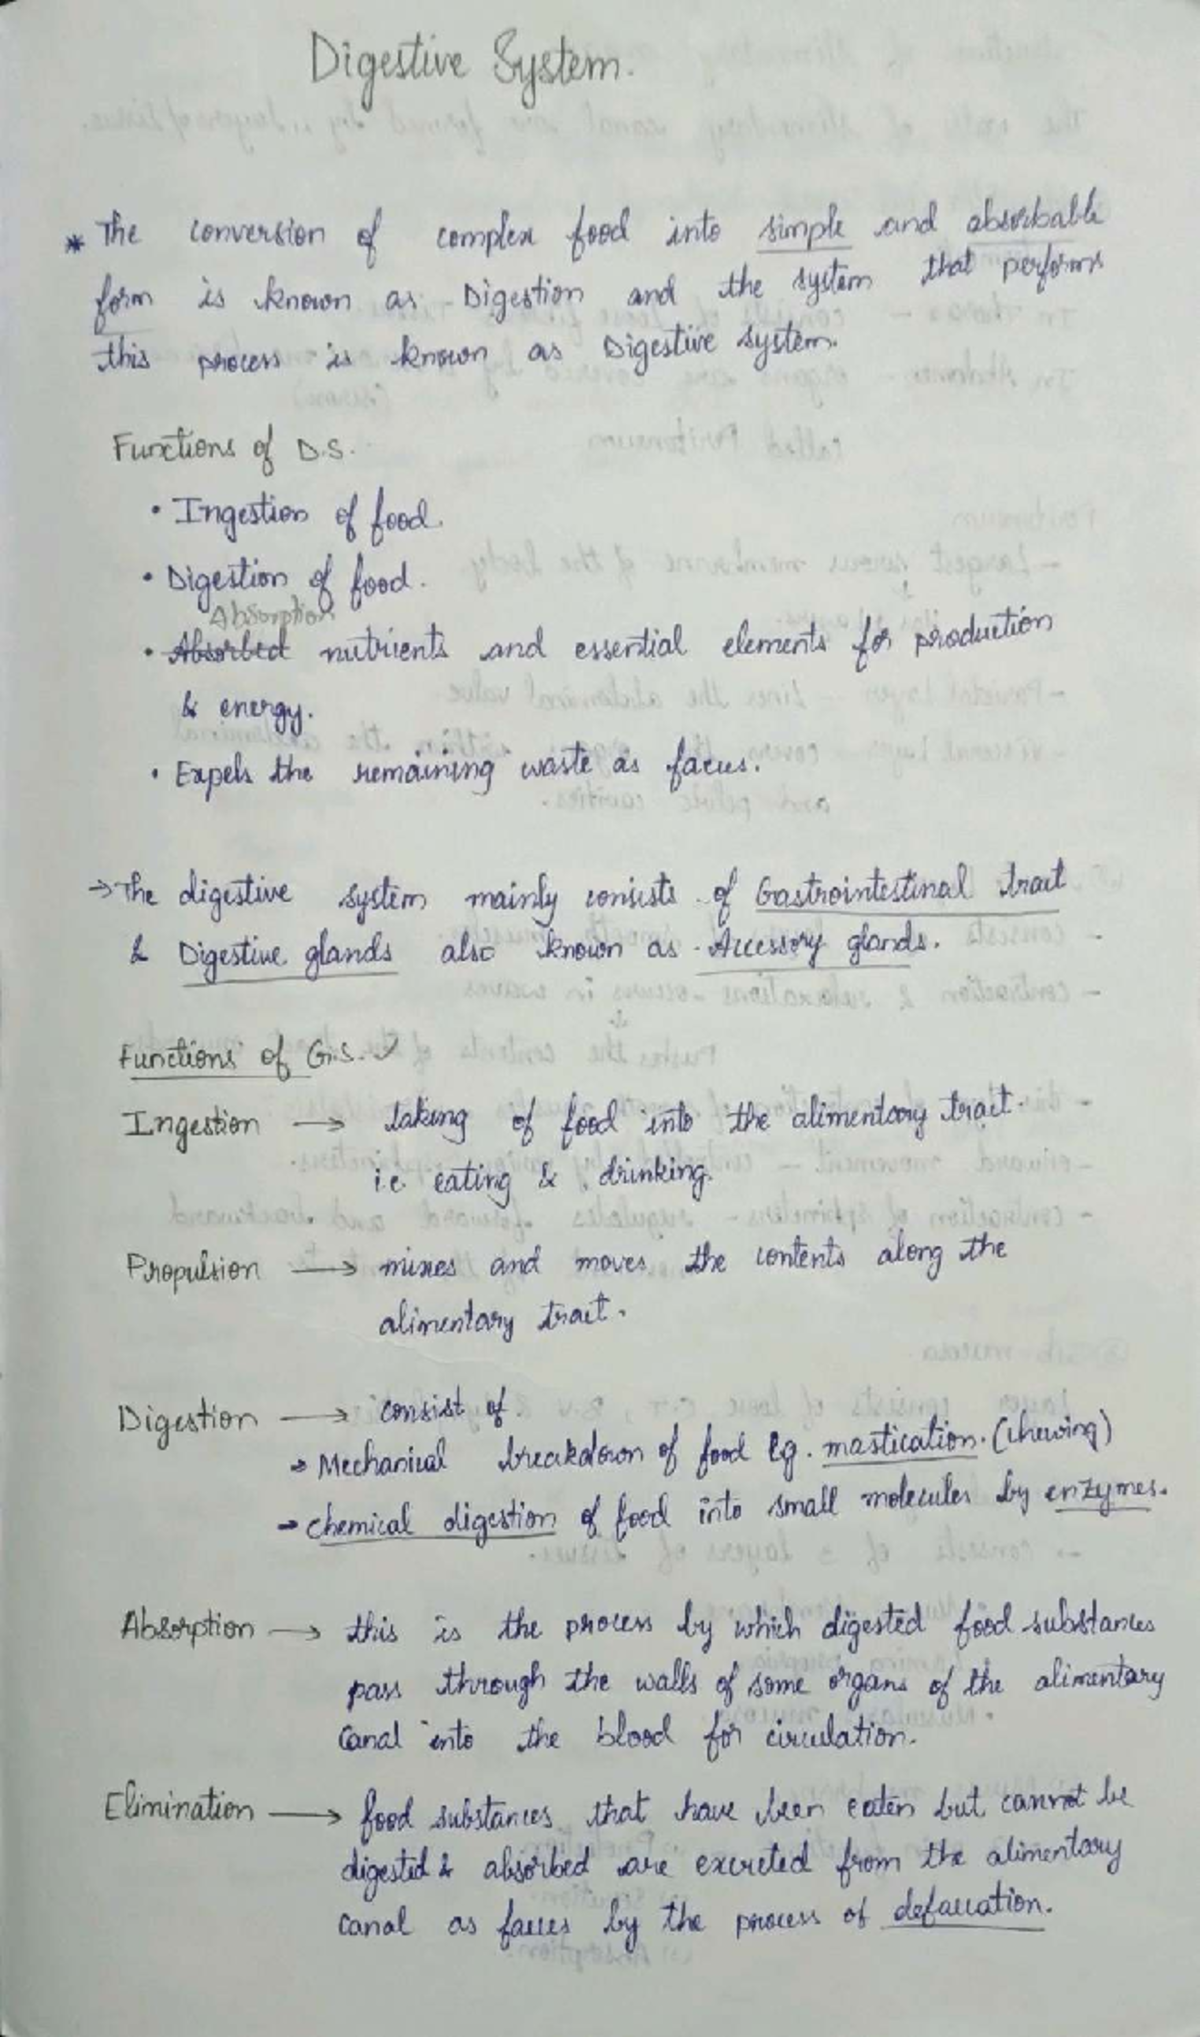 Digestive System.
* The conversion of complex food into simple and absorbable
form is known as Digestion and the system that performs
this process is known as Digestive system.
Functions of D.S.
• Ingestion of food.
• Digestion of food.
Absorption
• Absorbed nutrients and essential elements for production
& energy.
• Expels the remaining waste as faeces.
→ The digestive system mainly consists of Gastrointestinal tract
& Digestive glands also known as Accessory glands.
Functions of G.S.
Ingestion → taking of food into the alimentary tract.
i.e. eating & drinking.
Propulsion → mixes and moves the contents along the
alimentary tract.
Digestion → consist of.
→ Mechanical breakdown of food Eg. mastication. (chewing)
→ chemical digestion of food into small molecules by enzymes.
Absorption → this is the process by which digested food substances
pass through the walls of some organs of the alimentary
Canal into the blood for circulation.
Elimination → food substances that have been eaten but cannot be
digested & absorbed are excreted from the alimentary
canal as faeces by the process of defaecation.